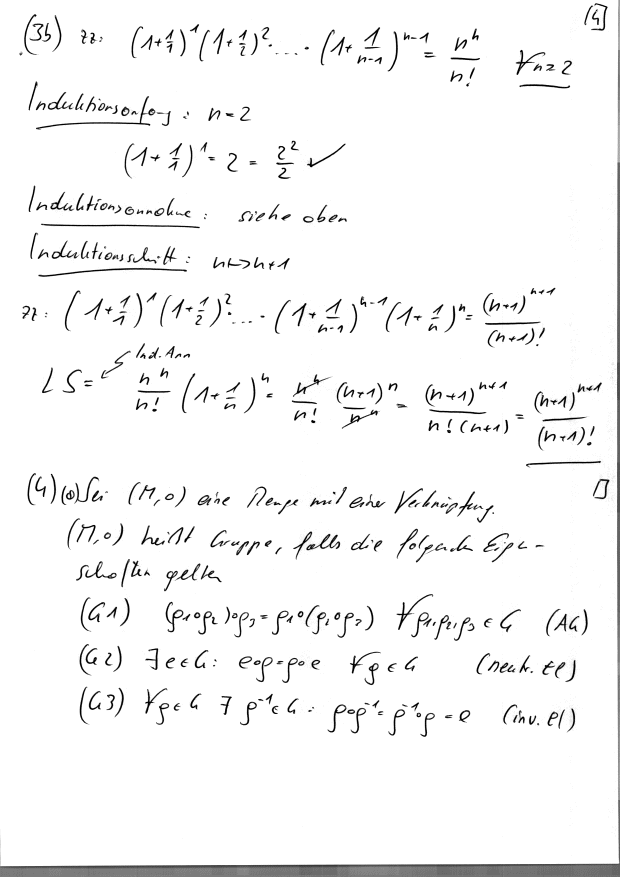 [4]
(3b) zz: (1+1/1)^1 (1+1/2)^2 · ... · (1+1/(n-1))^(n-1) = n^n/n! ∀n≥2
Induktionsanfang: n=2
(1+1/1)^1 = 2 = 2^2/2 ✓
Induktionsannahme: siehe oben
Induktionsschritt: n↦n+1
zz: (1+1/1)^1 (1+1/2)^2 · ... · (1+1/(n-1))^(n-1) (1+1/n)^n = (n+1)^(n+1)/(n+1)!
Ind. Ann
LS = n^n/n! (1+1/n)^n = n^n/n! (n+1)^n/n^n = (n+1)^(n+1)/(n!(n+1)) = (n+1)^(n+1)/(n+1)!
□
(4) (a) Sei (M,∘) eine Menge mit einer Verknüpfung.
(M,∘) heißt Gruppe, falls die folgenden Eigen-
schaften gelten
(G1) (g1∘g2)∘g3 = g1∘(g2∘g3) ∀g1,g2,g3 ∈ G (AG)
(G2) ∃e∈G: e∘g=g∘e ∀g∈G (neutr. El)
(G3) ∀g∈G ∃ g^-1∈G: g∘g^-1 = g^-1∘g = e (inv. El)